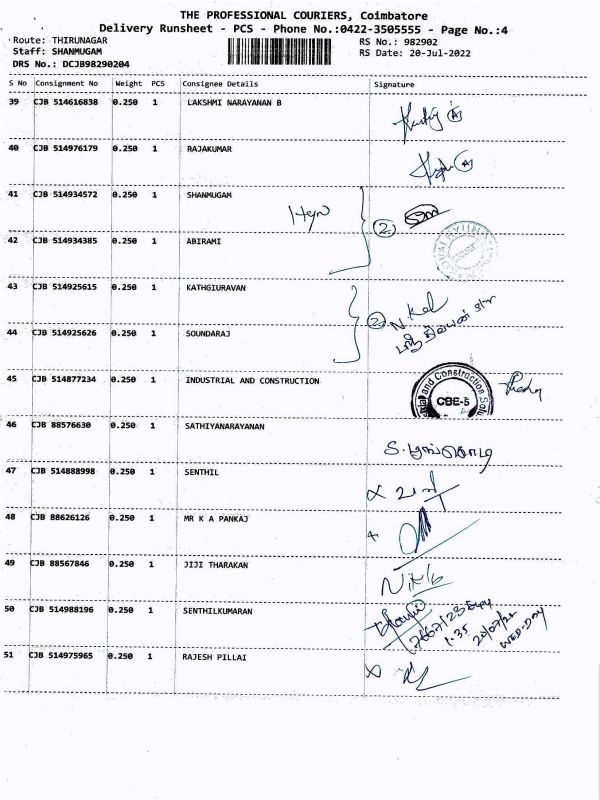 THE PROFESSIONAL COURIERS, Coimbatore
Delivery Runsheet - PCS - Phone No.:0422-3505555 - Page No.:4
Route: THIRUNAGAR
RS No.: 982902
Staff: SHANMUGAM
RS Date: 20-Jul-2022
DRS No.: DCJB98290204
S No Consignment No Weight PCS Consignee Details Signature
39 CJB 514616838 0.250 1 LAKSHMI NARAYANAN B
40 CJB 514976179 0.250 1 RAJAKUMAR
41 CJB 514934572 0.250 1 SHANMUGAM
2
42 CJB 514934385 0.250 1 ABIRAMI
43 CJB 514925615 0.250 1 KATHGIURAVAN
2
44 CJB 514925626 0.250 1 SOUNDARAJ
45 CJB 514877234 0.250 1 INDUSTRIAL AND CONSTRUCTION
and Construction
CBE-5
46 CJB 88576630 0.250 1 SATHIYANARAYANAN
S. பூங்கொடி
47 CJB 514888998 0.250 1 SENTHIL
48 CJB 88626126 0.250 1 MR K A PANKAJ
49 CJB 88567846 0.250 1 JIJI THARAKAN
50 CJB 514988196 0.250 1 SENTHILKUMARAN
1.35
20/07/22
WED-DAY
51 CJB 514975965 0.250 1 RAJESH PILLAI